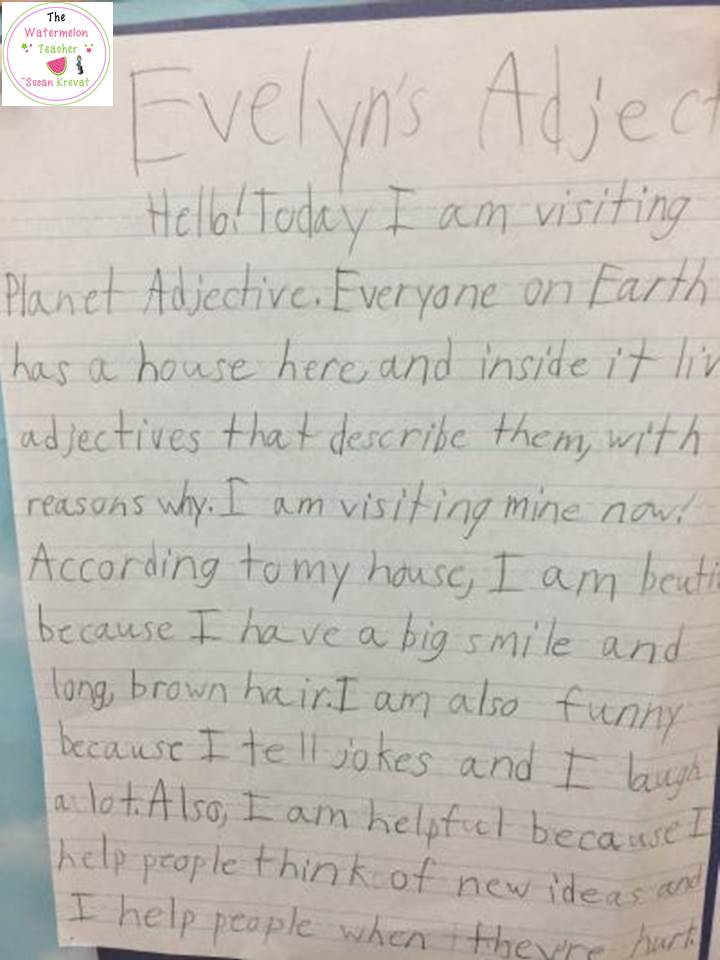 The
Watermelon
Teacher
~Susan Krevat
Evelyn's Adject
Hello! Today I am visiting
Planet Adjective. Everyone on Earth
has a house here, and inside it liv
adjectives that describe them, with
reasons why. I am visiting mine now!
According to my house, I am beuti
because I have a big smile and
long, brown hair. I am also funny
because I tell jokes and I laugh
a lot. Also, I am helpful because I
help people think of new ideas and
I help people when they're hurt.